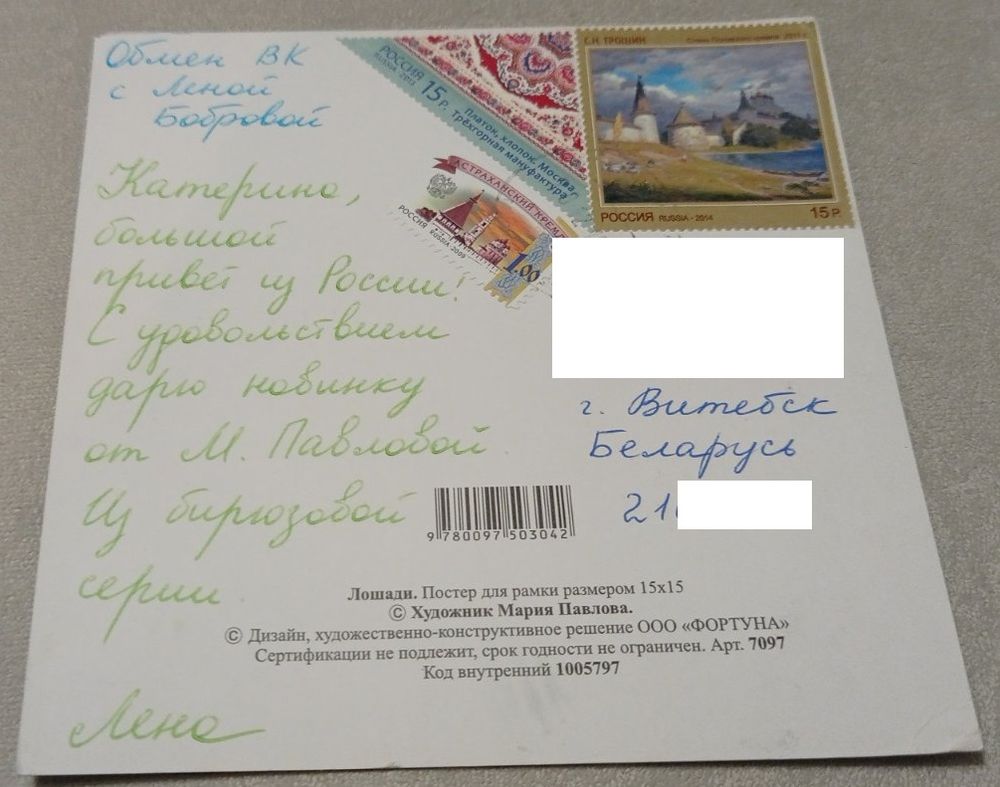 Обмен ВК
с Леной
Бобровой
Катерина,
большой
привет из России!
С удовольствием
дарю новинку
от М. Павловой
Из бирюзовой
серии
Лена
РОССИЯ
RUSSIA · 2013
15 Р.
Платок, хлопок. Москва,
Трёхгорная мануфактура
С.Н. ТРОШИН
РОССИЯ RUSSIA · 2014
15 Р.
АСТРАХАНСКИЙ КРЕМЛЬ
РОССИЯ RUSSIA 2009
1.00
г. Витебск
Беларусь
21
9 780097 503042
Лошади. Постер для рамки размером 15х15
© Художник Мария Павлова.
© Дизайн, художественно-конструктивное решение ООО «ФОРТУНА»
Сертификации не подлежит, срок годности не ограничен. Арт. 7097
Код внутренний 1005797